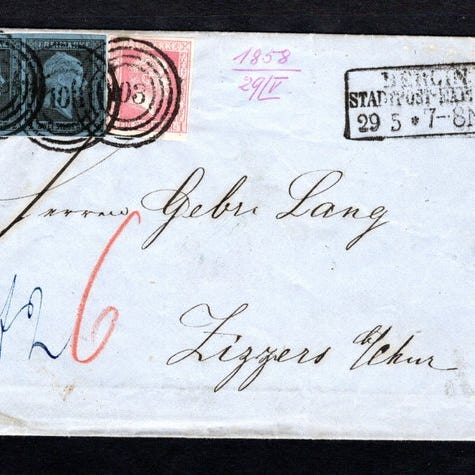 FREIMARKE
103
03
1858
29/V
BERLIN
STADTPOST-EXP
29 5 * 7-8N
Herren Gebr. Lang
6
Zizzers b/Chur